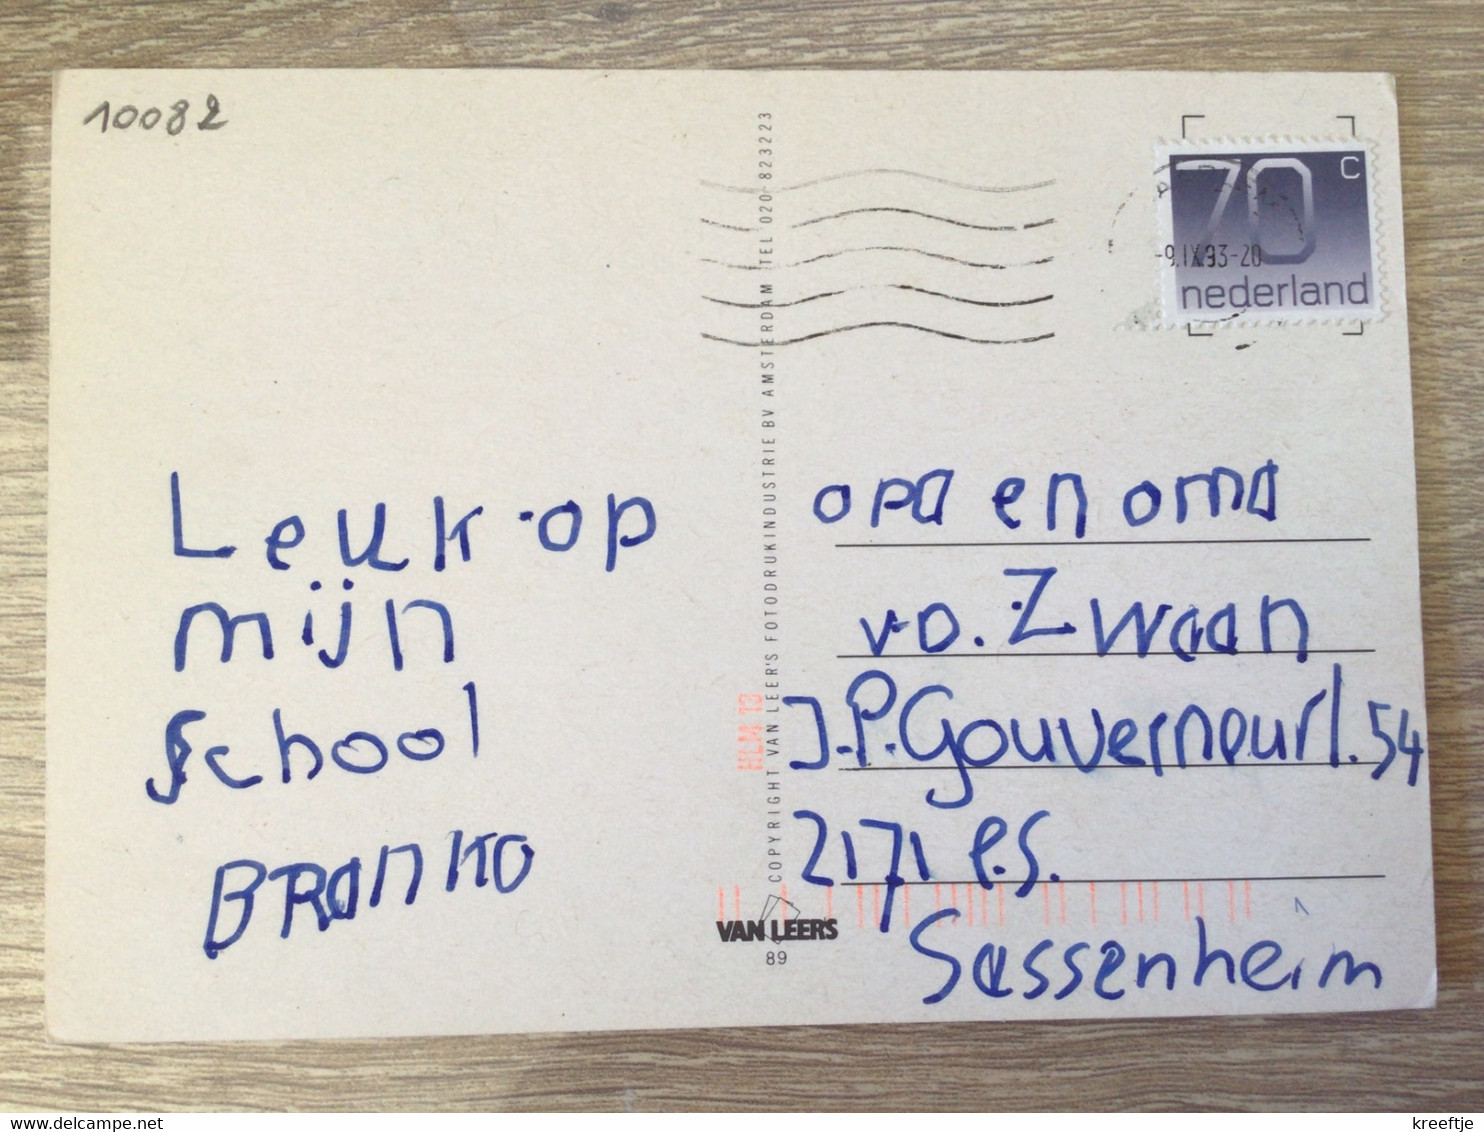 10082
70 c
-9.IX.93-20
nederland
Leuk op
mijn
school
BRANKO
COPYRIGHT VAN LEER'S FOTODRUKINDUSTRIE BV AMSTERDAM TEL 020-823223
HLM 13
VAN LEER'S
89
opa en oma
v.d. Zwaan
J.P. Gouverneurl. 54
2171 e.s.
Sassenheim
delcampe.net
kreeftje